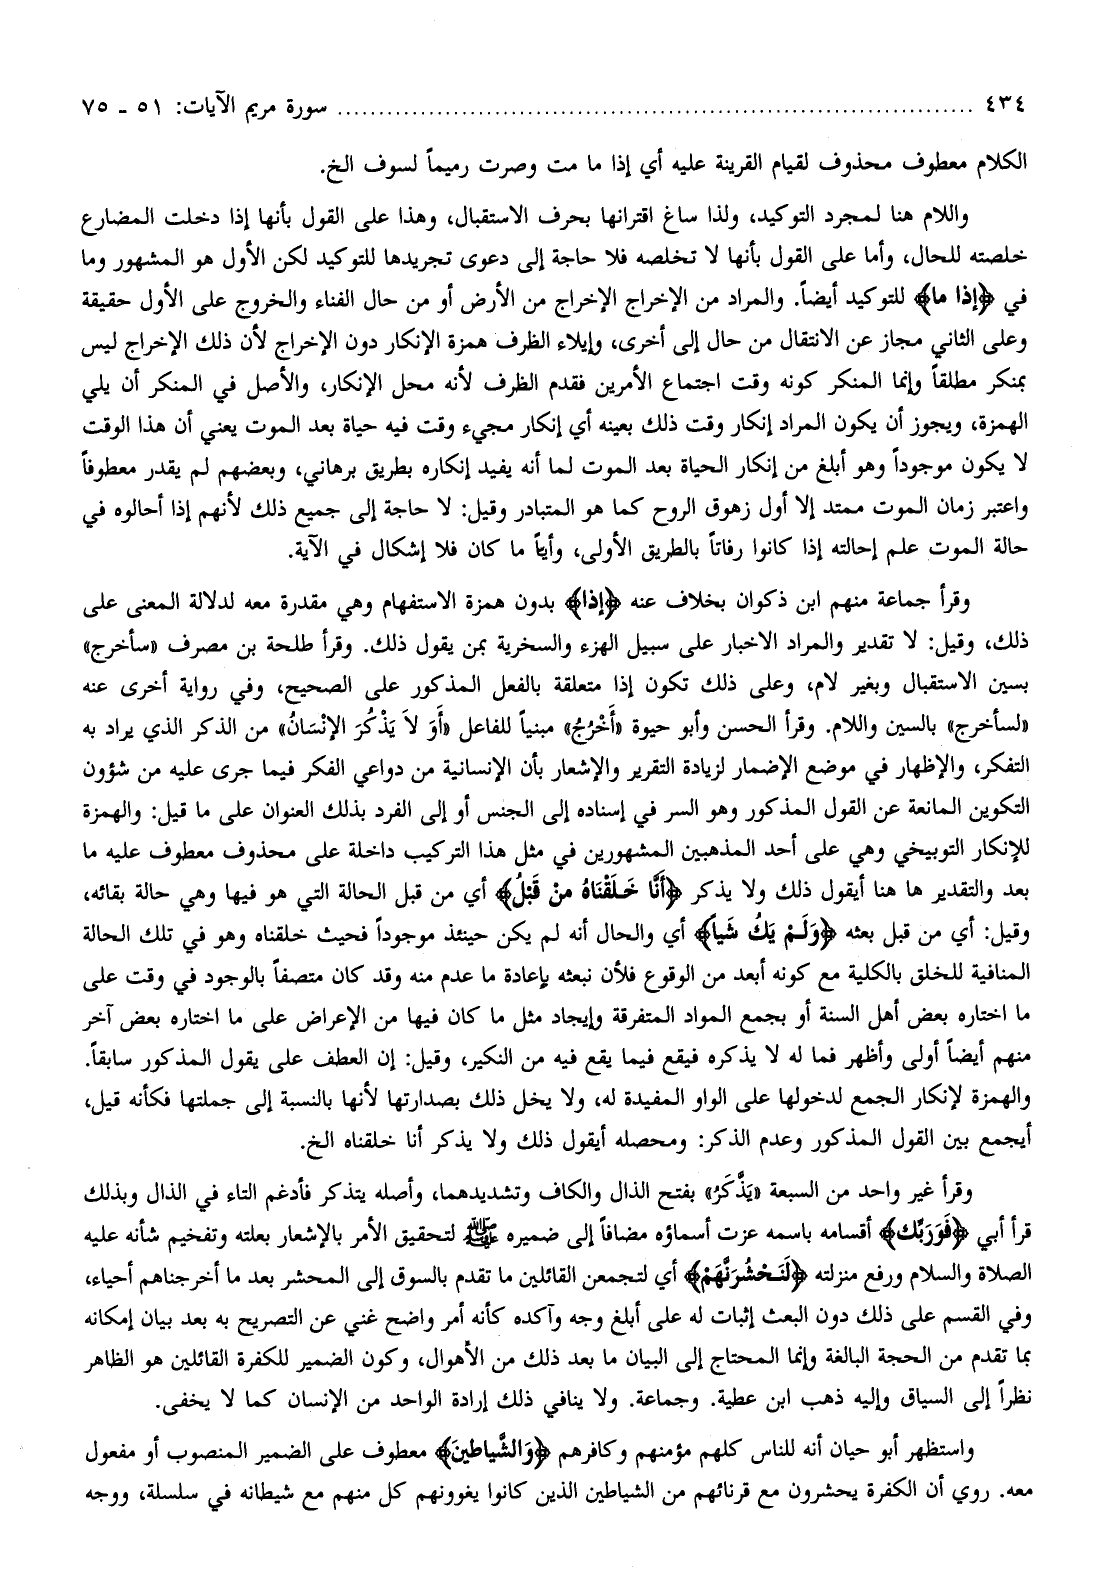 ٤٣٤ ........................................ سورة مريم الآيات: ٥١ ـ ٧٥
الكلام معطوف محذوف لقيام القرينة عليه أي إذا ما مت وصرت رميماً لسوف الخ.
واللام هنا لمجرد التوكيد، ولذا ساغ اقترانها بحرف الاستقبال، وهذا على القول بأنها إذا دخلت المضارع
خلصته للحال، وأما على القول بأنها لا تخلصه فلا حاجة إلى دعوى تجريدها للتوكيد لكن الأول هو المشهور وما
في ﴿إذا ما﴾ للتوكيد أيضاً. والمراد من الإخراج الإخراج من الأرض أو من حال الفناء والخروج على الأول حقيقة
وعلى الثاني مجاز عن الانتقال من حال إلى أخرى، وإيلاء الظرف همزة الإنكار دون الإخراج لأن ذلك الإخراج ليس
بمنكر مطلقاً وإنما المنكر كونه وقت اجتماع الأمرين فقدم الظرف لأنه محل الإنكار، والأصل في المنكر أن يلي
الهمزة، ويجوز أن يكون المراد إنكار وقت ذلك بعينه أي إنكار مجيء وقت فيه حياة بعد الموت يعني أن هذا الوقت
لا يكون موجوداً وهو أبلغ من إنكار الحياة بعد الموت لما أنه يفيد إنكاره بطريق برهاني، وبعضهم لم يقدر معطوفاً
واعتبر زمان الموت ممتد إلا أول زهوق الروح كما هو المتبادر وقيل: لا حاجة إلى جميع ذلك لأنهم إذا أحالوه في
حالة الموت علم إحالته إذا كانوا رفاتاً بالطريق الأولى، وأيّاً ما كان فلا إشكال في الآية.
وقرأ جماعة منهم ابن ذكوان بخلاف عنه ﴿إذا﴾ بدون همزة الاستفهام وهي مقدرة معه لدلالة المعنى على
ذلك، وقيل: لا تقدير والمراد الاخبار على سبيل الهزء والسخرية بمن يقول ذلك. وقرأ طلحة بن مصرف «سأخرج»
بسين الاستقبال وبغير لام، وعلى ذلك تكون إذا متعلقة بالفعل المذكور على الصحيح، وفي رواية أخرى عنه
«لسأخرج» بالسين واللام. وقرأ الحسن وأبو حيوة «أَخْرُجُ» مبنياً للفاعل «أَوَ لاَ يَذْكُرَ الإنْسَانُ» من الذكر الذي يراد به
التفكر، والإظهار في موضع الإضمار لزيادة التقرير والإشعار بأن الإنسانية من دواعي الفكر فيما جرى عليه من شؤون
التكوين المانعة عن القول المذكور وهو السر في إسناده إلى الجنس أو إلى الفرد بذلك العنوان على ما قيل: والهمزة
للإنكار التوبيخي وهي على أحد المذهبين المشهورين في مثل هذا التركيب داخلة على محذوف معطوف عليه ما
بعد والتقدير ها هنا أيقول ذلك ولا يذكر ﴿أَنَّا خَلَقْنَاهُ منْ قَبْلُ﴾ أي من قبل الحالة التي هو فيها وهي حالة بقائه،
وقيل: أي من قبل بعثه ﴿وَلَمْ يَكُ شَياً﴾ أي والحال أنه لم يكن حينئذ موجوداً فحيث خلقناه وهو في تلك الحالة
المنافية للخلق بالكلية مع كونه أبعد من الوقوع فلأن نبعثه بإعادة ما عدم منه وقد كان متصفاً بالوجود في وقت على
ما اختاره بعض أهل السنة أو بجمع المواد المتفرقة وإيجاد مثل ما كان فيها من الإعراض على ما اختاره بعض آخر
منهم أيضاً أولى وأظهر فما له لا يذكره فيقع فيما يقع فيه من النكير، وقيل: إن العطف على يقول المذكور سابقاً.
والهمزة لإنكار الجمع لدخولها على الواو المفيدة له، ولا يخل ذلك بصدارتها لأنها بالنسبة إلى جملتها فكأنه قيل،
أيجمع بين القول المذكور وعدم الذكر: ومحصله أيقول ذلك ولا يذكر أنا خلقناه الخ.
وقرأ غير واحد من السبعة «يَذَّكَرُ» بفتح الذال والكاف وتشديدهما، وأصله يتذكر فأدغم التاء في الذال وبذلك
قرأ أبي ﴿فَوَرَبِّكَ﴾ أقسامه باسمه عزت أسماؤه مضافاً إلى ضميره ﷺ لتحقيق الأمر بالإشعار بعلته وتفخيم شأنه عليه
الصلاة والسلام ورفع منزلته ﴿لَنَحْشُرَنَّهَمْ﴾ أي لتجمعن القائلين ما تقدم بالسوق إلى المحشر بعد ما أخرجناهم أحياء،
وفي القسم على ذلك دون البعث إثبات له على أبلغ وجه وآكده كأنه أمر واضح غني عن التصريح به بعد بيان إمكانه
بما تقدم من الحجة البالغة وإنما المحتاج إلى البيان ما بعد ذلك من الأهوال، وكون الضمير للكفرة القائلين هو الظاهر
نظراً إلى السياق وإليه ذهب ابن عطية. وجماعة. ولا ينافي ذلك إرادة الواحد من الإنسان كما لا يخفى.
واستظهر أبو حيان أنه للناس كلهم مؤمنهم وكافرهم ﴿وَالشَّياطينَ﴾ معطوف على الضمير المنصوب أو مفعول
معه. روي أن الكفرة يحشرون مع قرنائهم من الشياطين الذين كانوا يغوونهم كل منهم مع شيطانه في سلسلة، ووجه